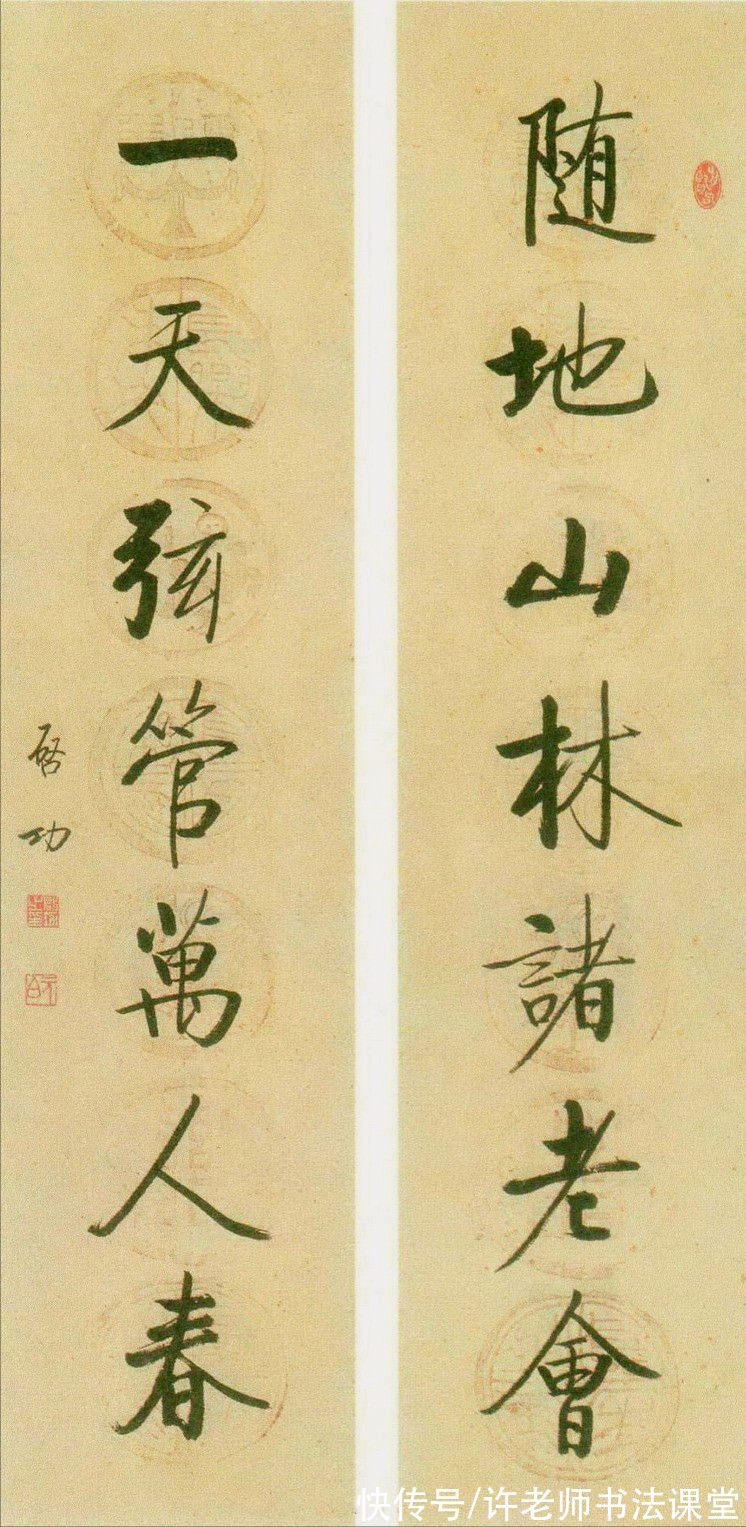 随地山林諸老會
一天弦管萬人春
启功
快传号/许老师书法课堂